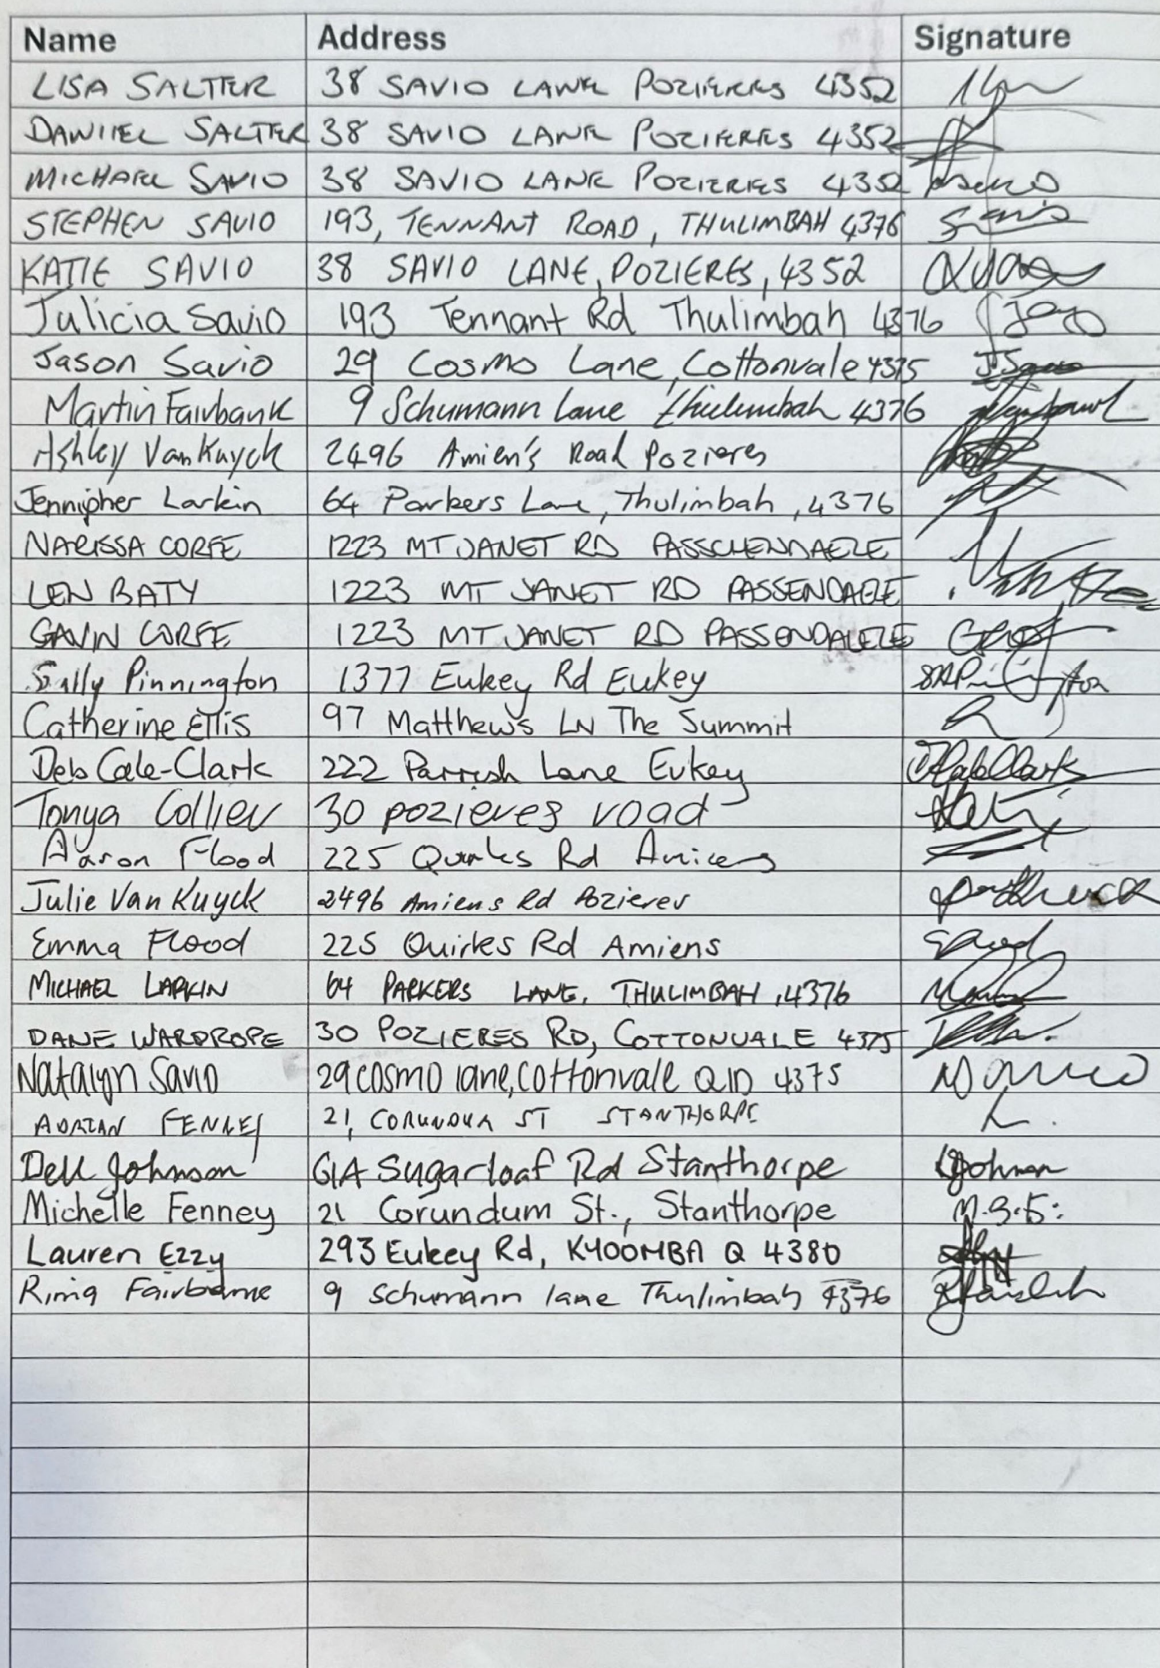 Name Address Signature
LISA SALTER 38 SAVIO LANE POZIERES 4352
DANIEL SALTER 38 SAVIO LANE POZIERES 4352
MICHAEL SAVIO 38 SAVIO LANE POZIERES 4352
STEPHEN SAVIO 193, TENNANT ROAD, THULIMBAH 4376
KATIE SAVIO 38 SAVIO LANE, POZIERES, 4352
Julicia Savio 193 Tennant Rd Thulimbah 4376
Jason Savio 29 Cosmo Lane, Cottonvale 4375
Martin Fairbank 9 Schumann Lane Thulimbah 4376
Ashley Van Kuyck 2496 Amien's Road Pozieres
Jennipher Larkin 64 Parkers Lane, Thulimbah, 4376
NARISSA CORFE 1223 MT JANET RD PASSCHENDAELE
LEN BATY 1223 MT JANET RD PASSENDAELE
GAVIN CORFE 1223 MT JANET RD PASSENDALELE
Sally Pinnington 1377 Eukey Rd Eukey
Catherine Ellis 97 Matthews LN The Summit
Deb Cale-Clark 222 Parrish Lane Eukey
Tonya Collier 30 pozieres road
Aaron Flood 225 Quirks Rd Amiens
Julie Van Kuyck 2496 Amiens Rd Pozieres
Emma Flood 225 Quirkes Rd Amiens
MICHAEL LARKIN 64 PARKERS LANE, THULIMBAH, 4376
DANE WARDROPE 30 POZIERES RD, COTTONVALE 4375
Natalyn Savio 29 cosmo lane, cottonvale QLD 4375
ADRIAN FENNEY 21, CORUNDUM ST STANTHORPE
Dell Johnson 61A Sugarloaf Rd Stanthorpe
Michelle Fenney 21 Corundum St., Stanthorpe
Lauren Ezzy 293 Eukey Rd, KYOOMBA Q 4380
Rima 9 Schumann lane Thulimbah 4376